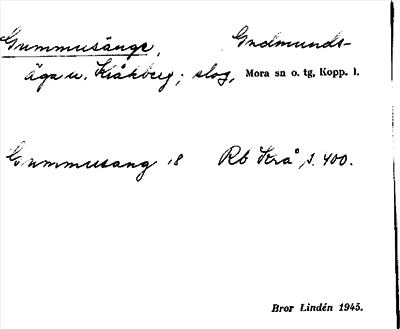 Gummusänge, Gudmunds-
äga u. Kråkberg; slog, Mora sn o. tg, Kopp. l.
Gummusang 18 Rb Krå s. 400.
Bror Lindén 1945.